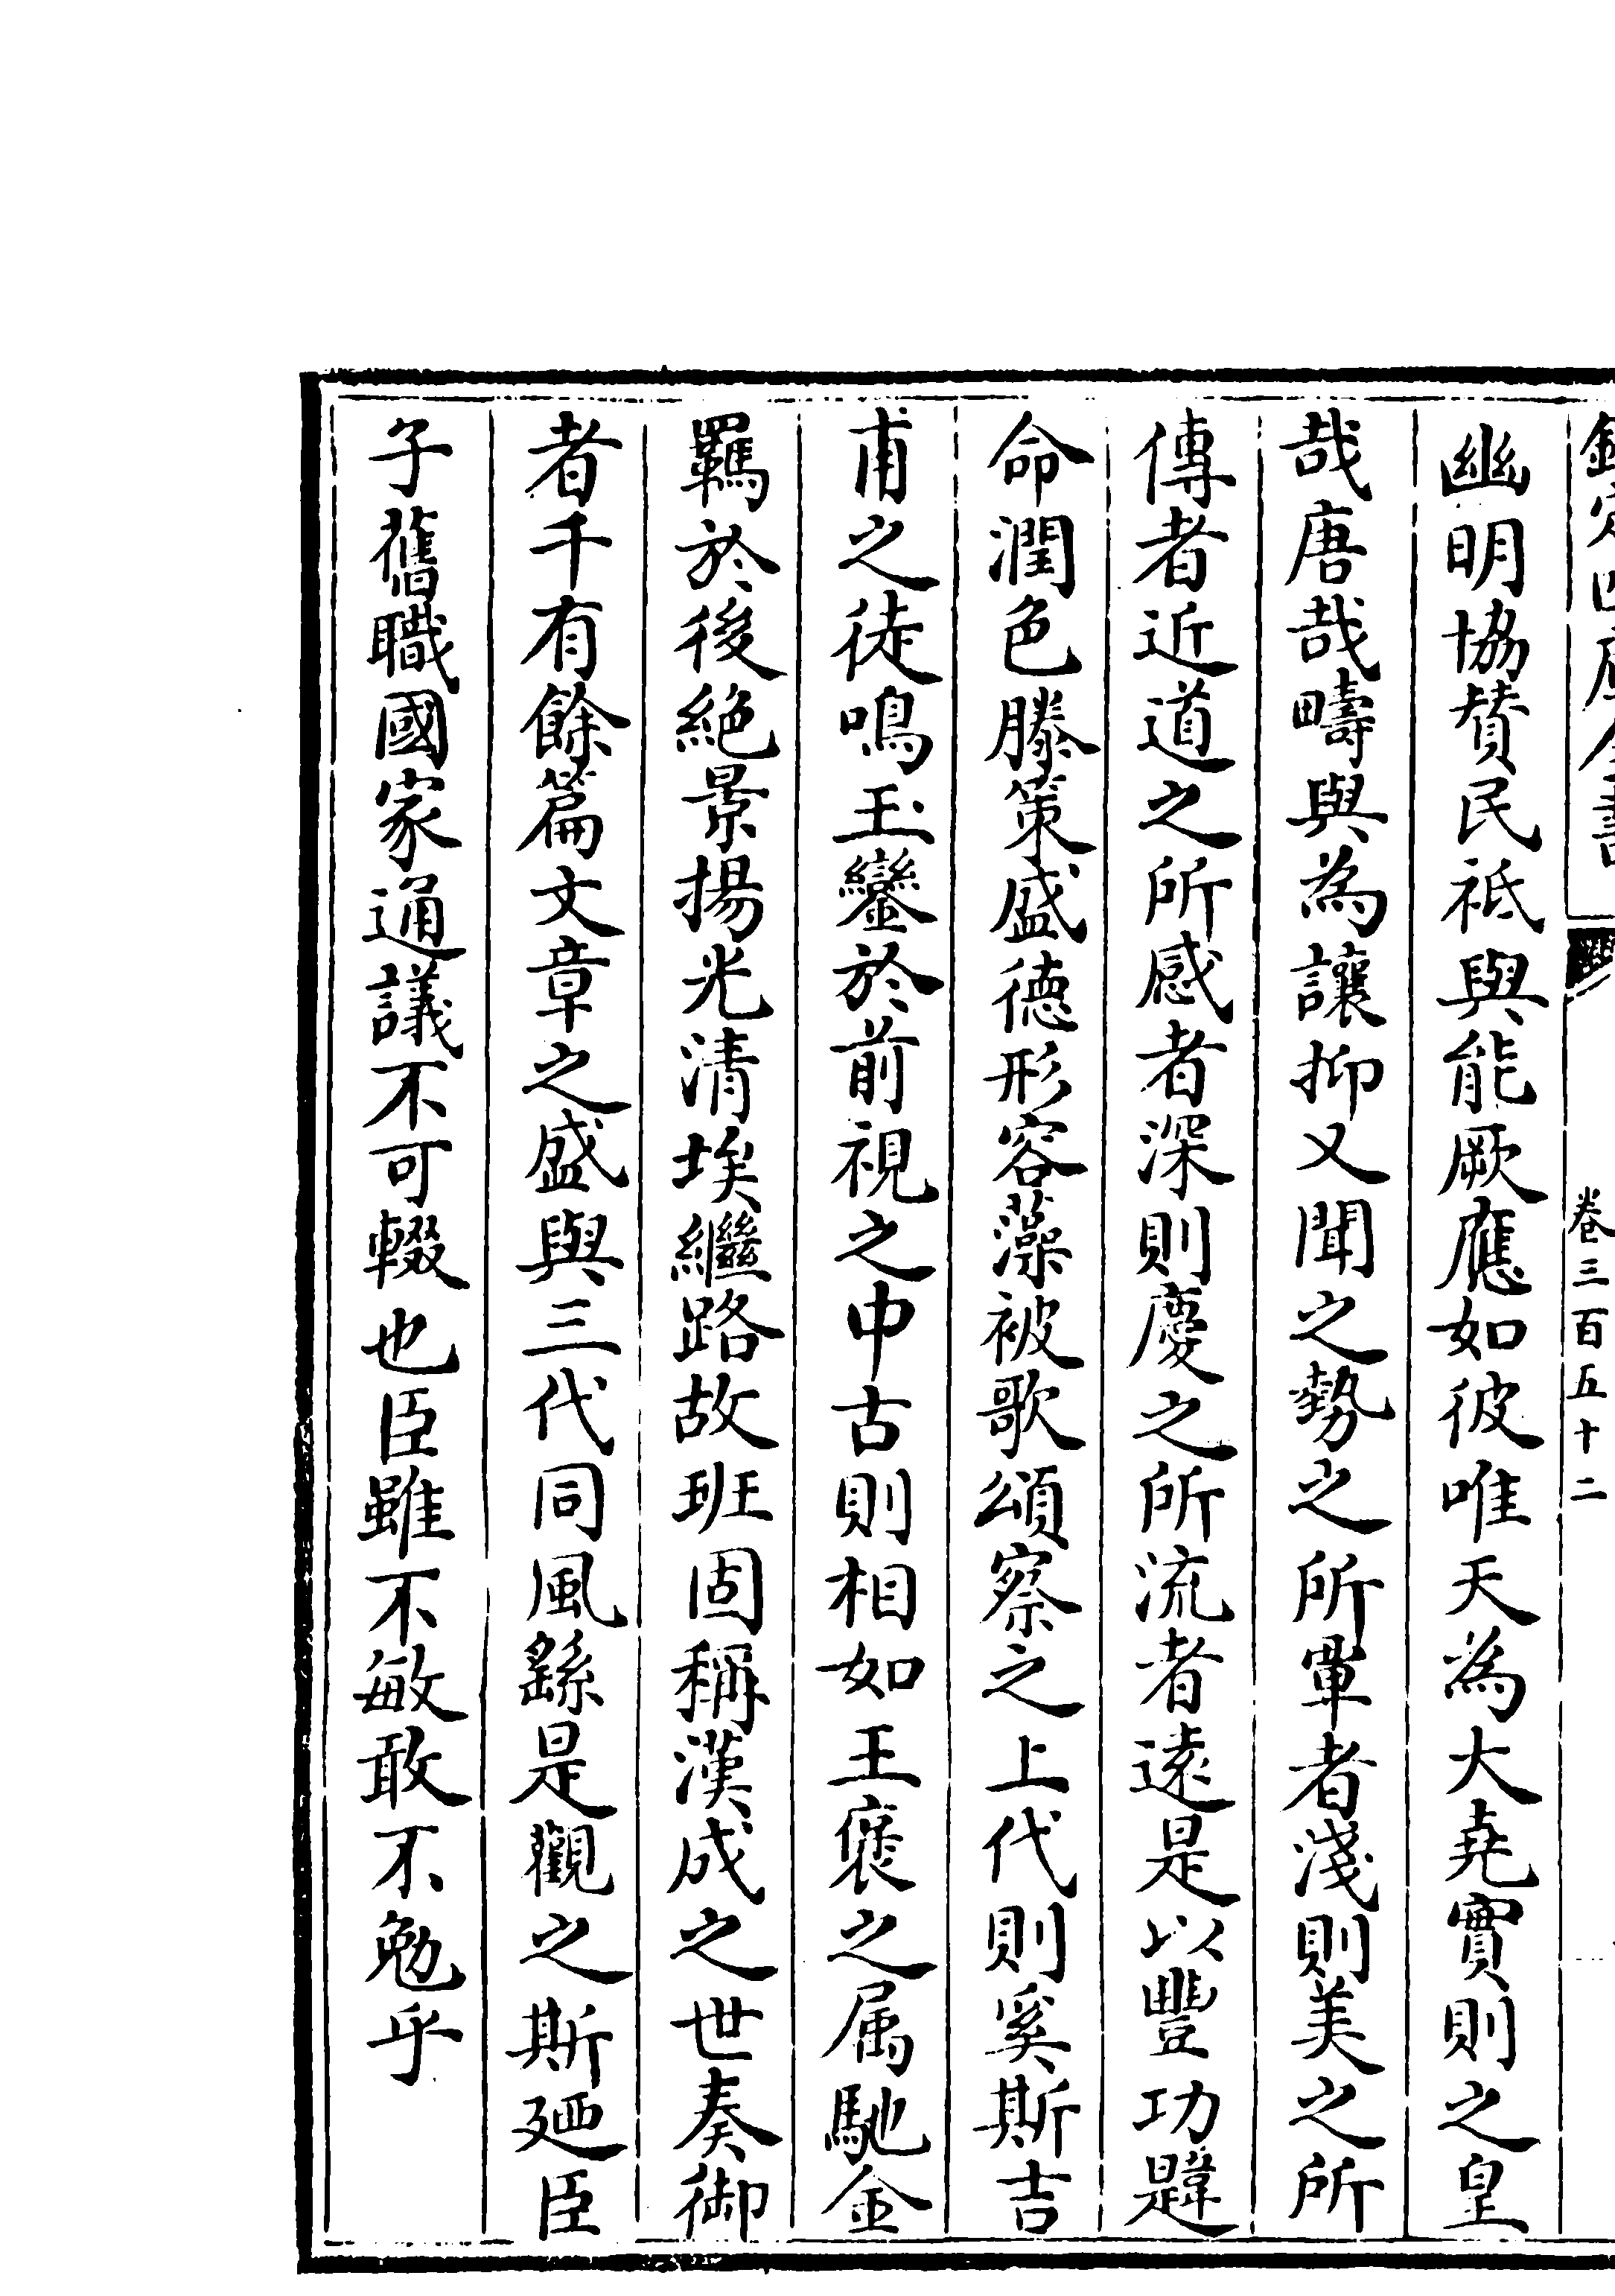 欽定四庫全書 卷三百五十二
幽明協賛民祗與能厥應如彼唯天為大堯實則之皇
哉唐哉疇與為讓抑又聞之勢之所覃者淺則美之所
傳者近道之所感者深則慶之所流者遠是以豐功韙
命潤色滕策盛德形容藻被歌頌察之上代則奚斯吉
甫之徒鳴玉鑾於前視之中古則相如王褒之属馳金
羈於後絶景揚光清埃繼路故班固稱漢成之世奏御
者千有餘篇文章之盛與三代同風繇是觀之斯廼臣
子舊職國家通議不可輟也臣雖不敏敢不勉乎